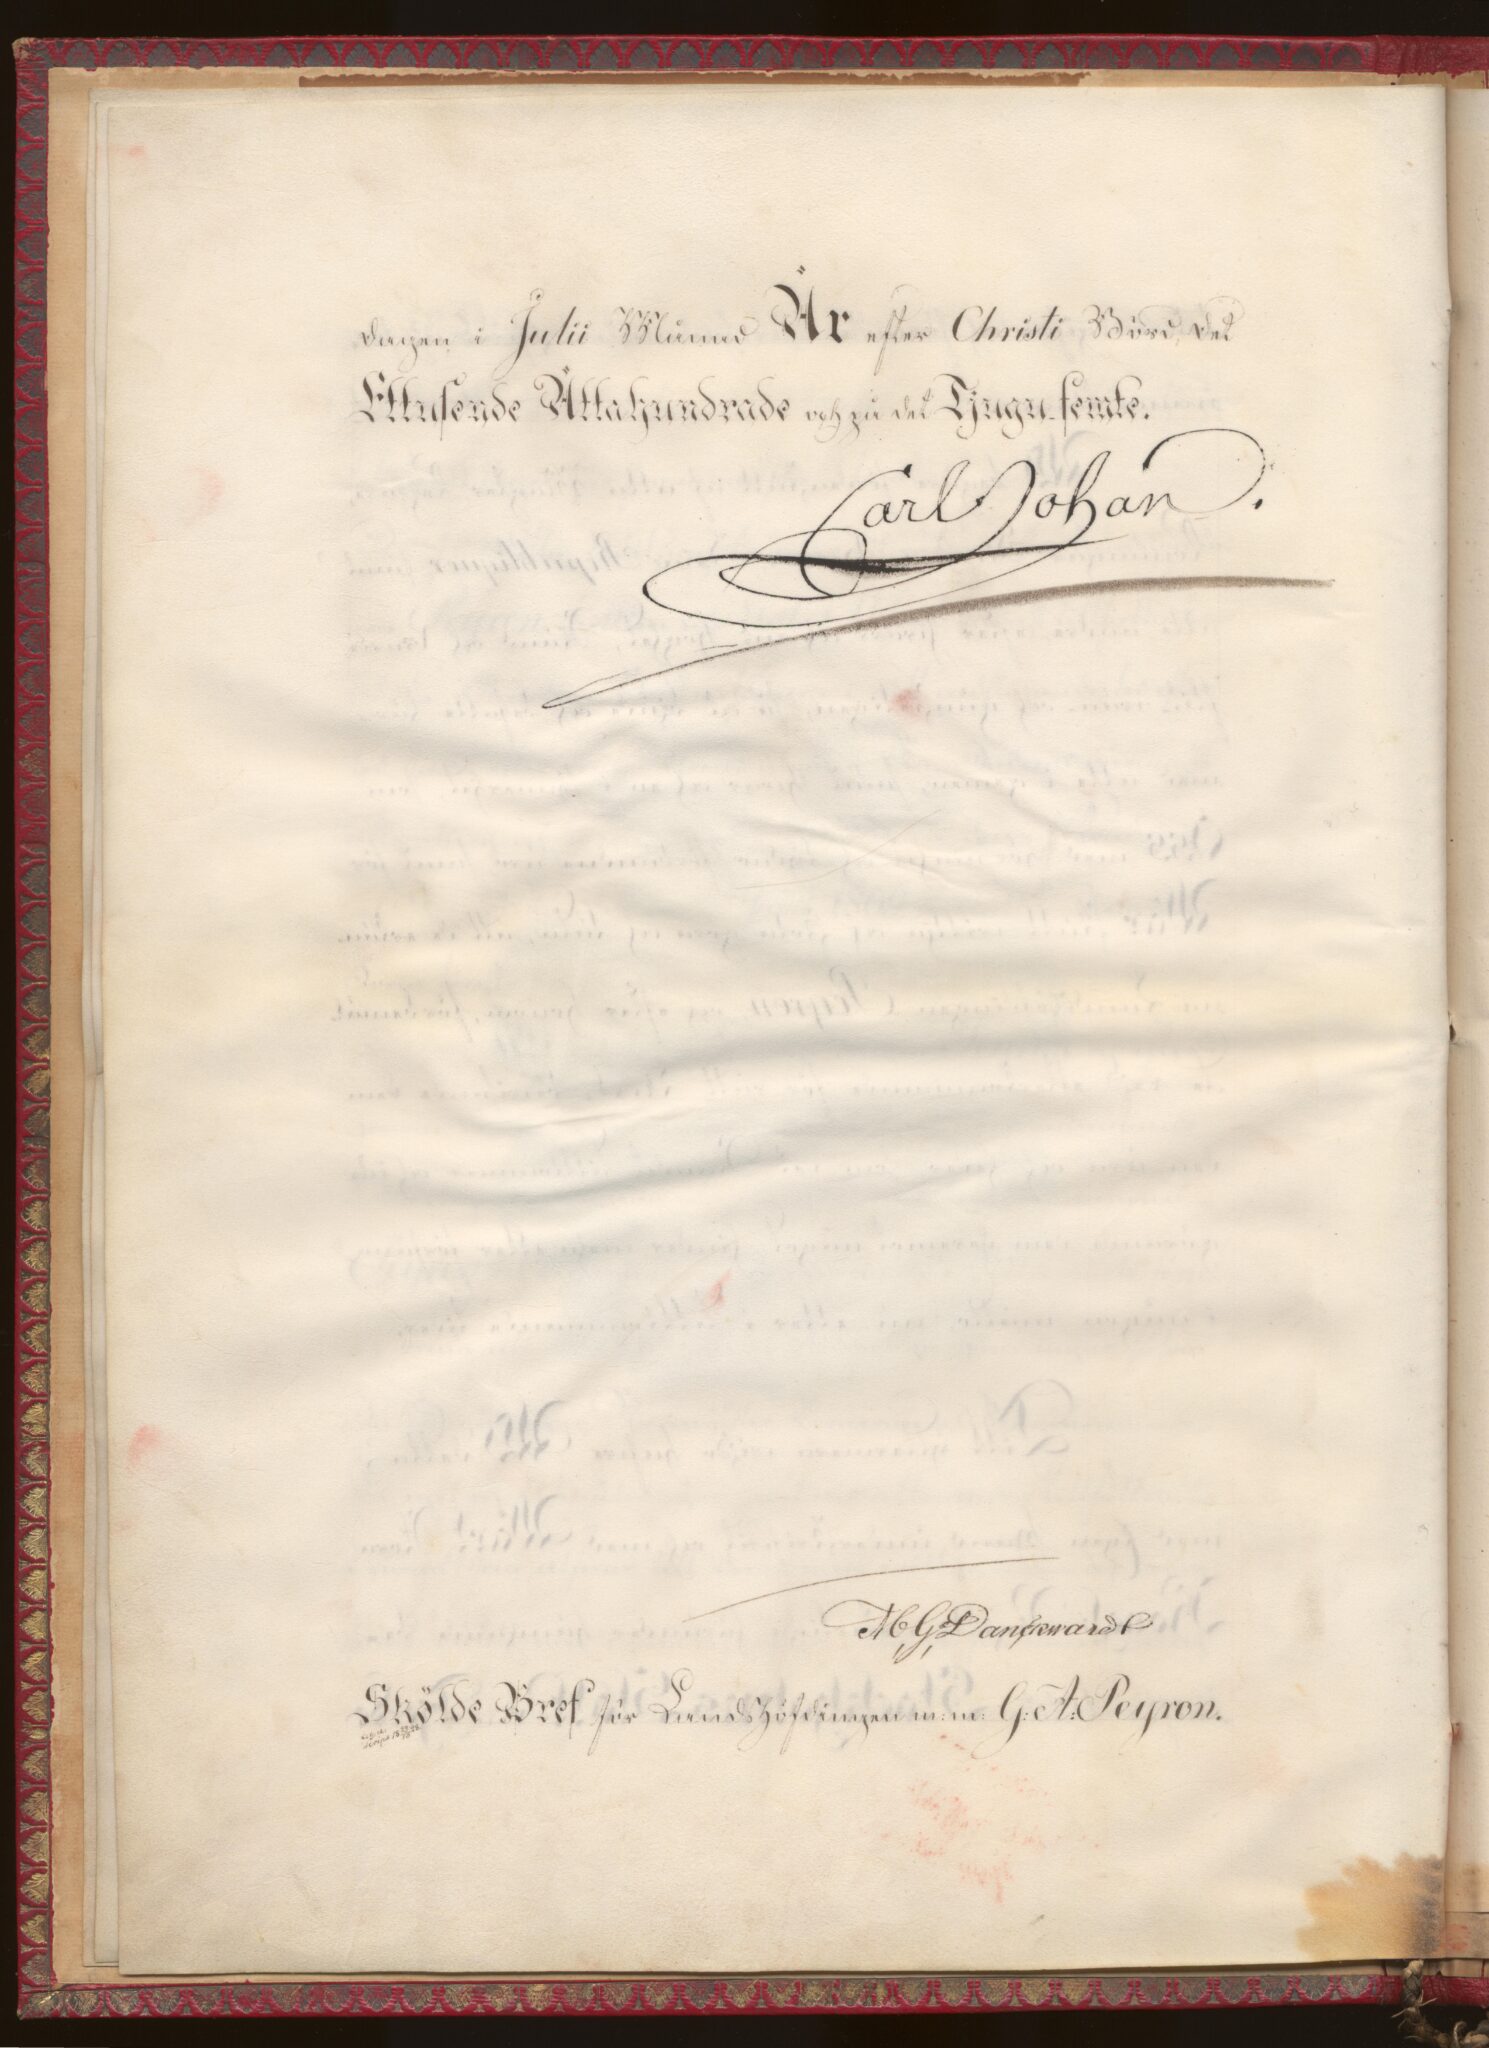 dagen i Julii Månad År efter Christi Börd, det
Ettusende Åttahundrade och på det Tjugu-femte.
Carl Johan.
M. G. Danckwardt
Sköldе Bref för Landshöfdingen m: m: G: A: Peyron.